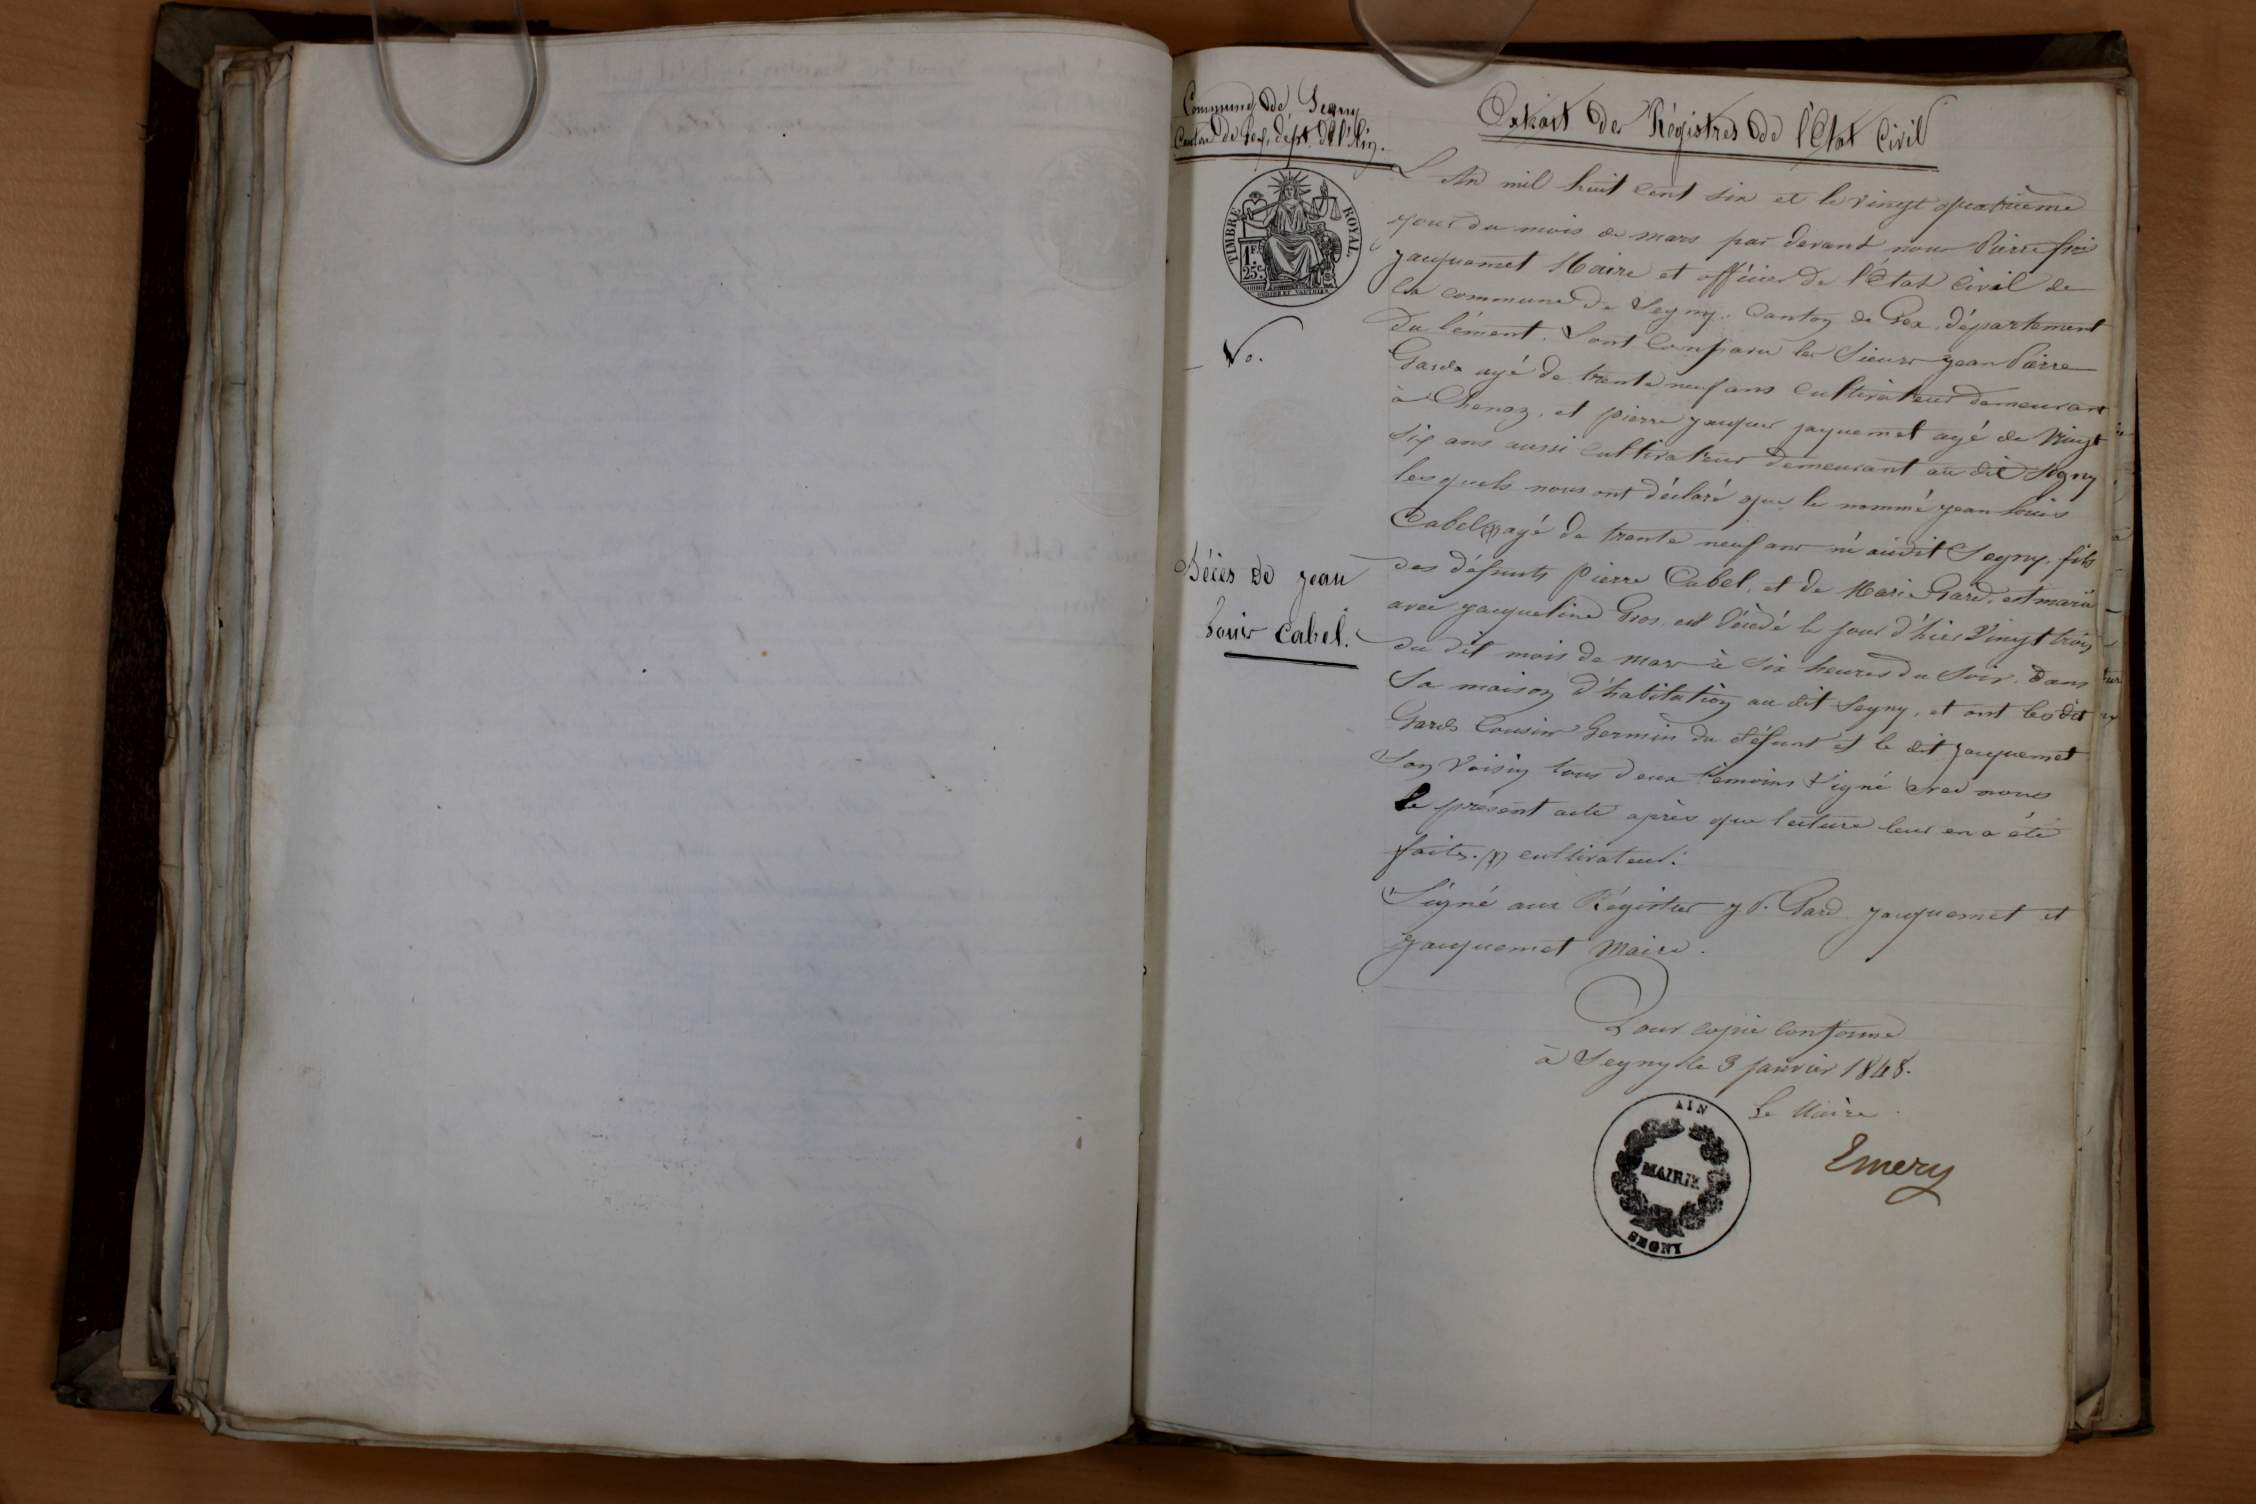 Commune de Segny
Canton de Gex, dépt. de l'Ain.
Extrait des Régistres de l'Etat Civil
TIMBRE ROYAL
1 F.
25 c.
No.
Décès de jean
Louis Cabel.
L'An mil huit cent six et le vingt quatrième
jour du mois de mars par devant nous Pierre
jacquemet Maire et officier de l'état Civil de
la commune de Segny, Canton de Gex, département
du lément. Sont Comparu les Sieurs jean Pierre
Gard agé de trente neuf ans Cultivateur demeurant
à Chenaz, et pierre jacques jaquemet agé de vingt
six ans aussi Cultivateur demeurant au dit Segny
lesquels nous ont déclaré que le nommé jean Louis
Cabel agé de trente neuf ans né audit Segny, fils
des défunts Pierre Cabel, et de Marie Gard, est marié
avec jacqueline Gros, est décédé le jour d'hier vingt trois
du dit mois de mars à six heures du Soir, dans
Sa maison d'habitation au dit Segny, et ont les dit
Gard Cousin Germin du défunt et le dit jacquemet
Son Voisin tous deux témoins Signé avec nous
le présent acte après que lecture leur en a été
faite. cultivateur.
Signé aux Régistres j P. Gard jacquemet et
jacquemet Maire.
Pour copie conforme
à Segny le 3 janvier 1848.
Le Maire
Emery
AIN
MAIRIE
SEGNY